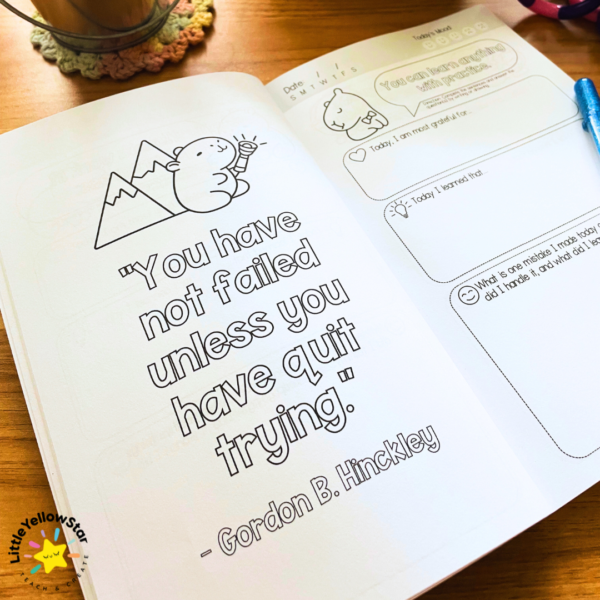 "You have
not failed
unless you
have quit
trying."
- Gordon B. Hinckley
Date: / /
S M T W T F S
Today's Mood
You can learn anything
with practice.
Today, I am most grateful for...
Today I learned that
What is one mistake I made today
did I handle it, and what did I
LittleYellowStar
TEACH & CREATE